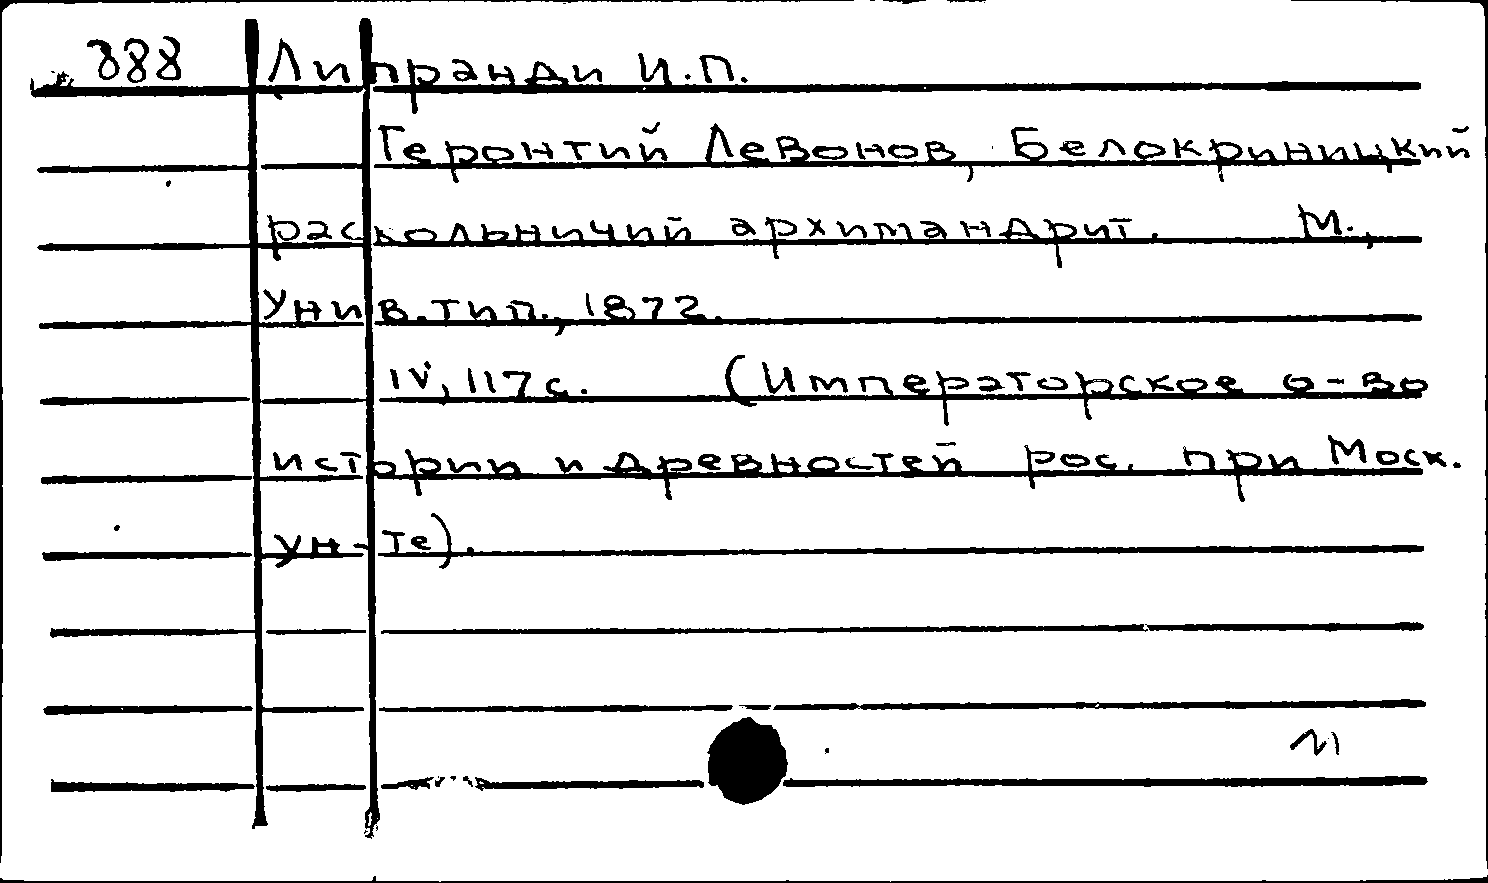 888 Липранди И.П.
Геронтий Левонов, Белокриницкий
раскольничий архимандрит. М.,
Унив. тип., 1872.
IV, 117 с. (Императорское о-во
истории и древностей рос. при Моск.
ун-те).